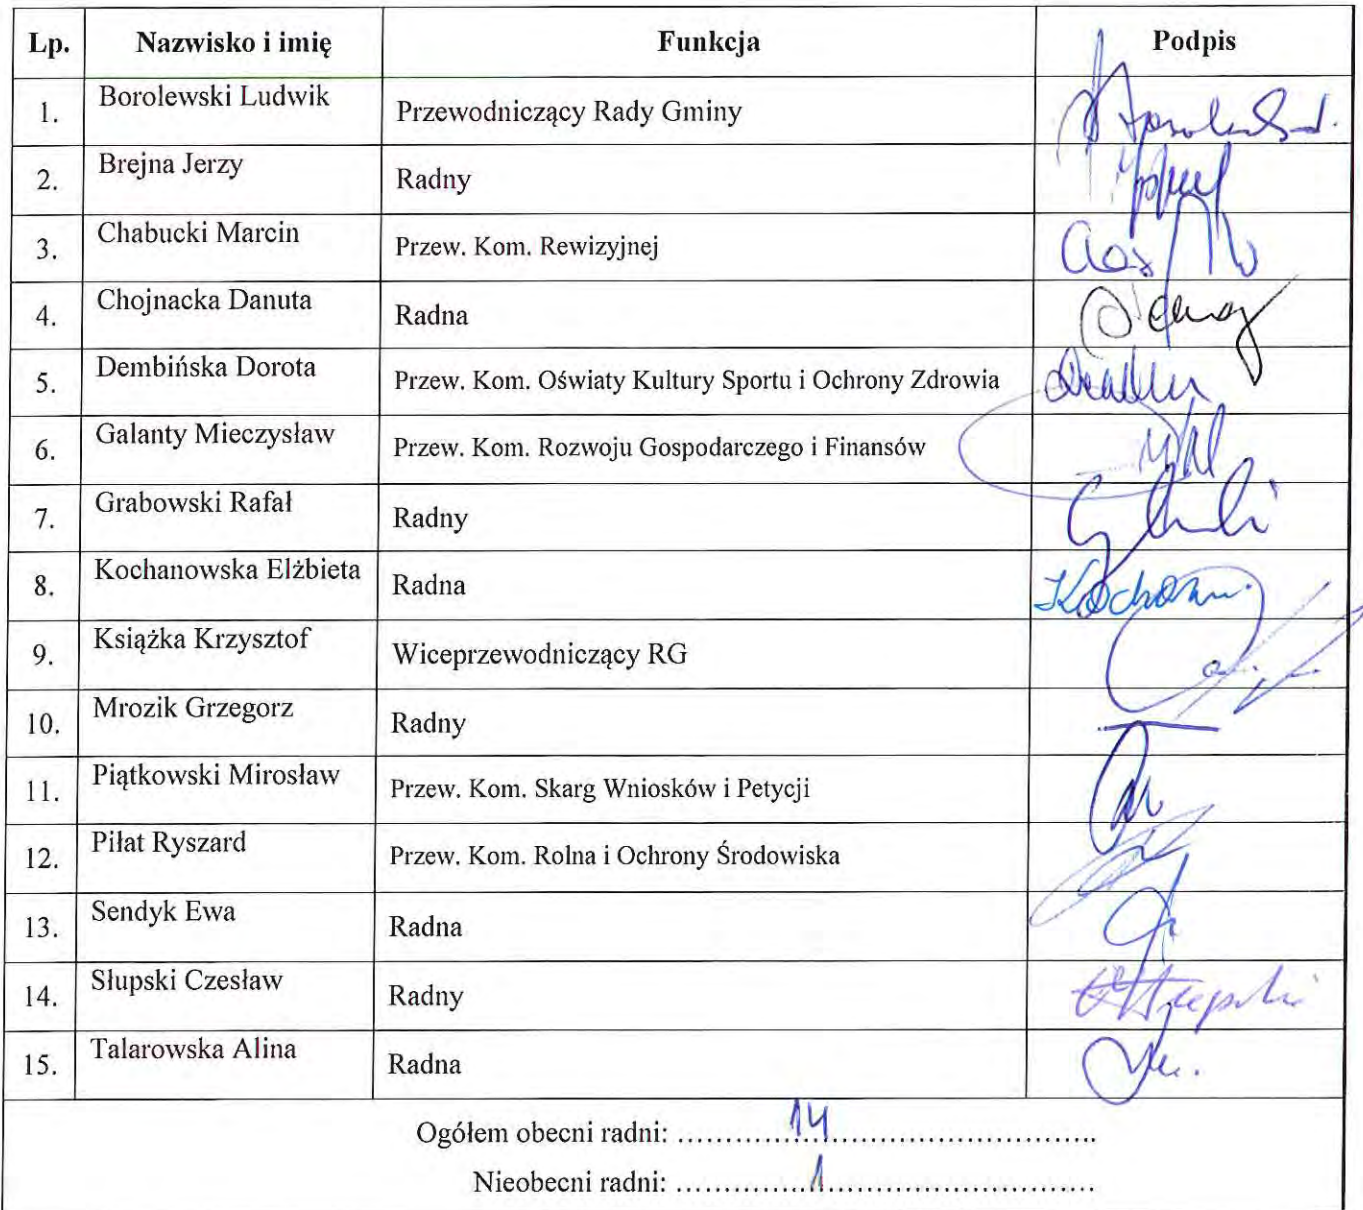 Lp. Nazwisko i imię Funkcja Podpis
1. Borolewski Ludwik Przewodniczący Rady Gminy
2. Brejna Jerzy Radny
3. Chabucki Marcin Przew. Kom. Rewizyjnej
4. Chojnacka Danuta Radna
5. Dembińska Dorota Przew. Kom. Oświaty Kultury Sportu i Ochrony Zdrowia
6. Galanty Mieczysław Przew. Kom. Rozwoju Gospodarczego i Finansów
7. Grabowski Rafał Radny
8. Kochanowska Elżbieta Radna
9. Książka Krzysztof Wiceprzewodniczący RG
10. Mrozik Grzegorz Radny
11. Piątkowski Mirosław Przew. Kom. Skarg Wniosków i Petycji
12. Piłat Ryszard Przew. Kom. Rolna i Ochrony Środowiska
13. Sendyk Ewa Radna
14. Słupski Czesław Radny
15. Talarowska Alina Radna
Ogółem obecni radni: ............14..............................
Nieobecni radni: ..............1..............................